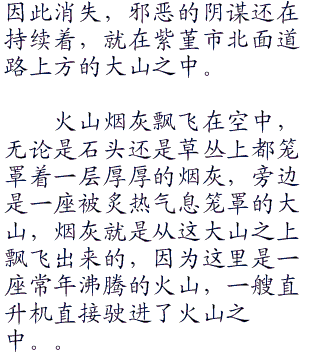 因此消失，邪恶的阴谋还在
持续着，就在紫堇市北面道
路上方的大山之中。
火山烟灰飘飞在空中，
无论是石头还是草丛上都笼
罩着一层厚厚的烟灰，旁边
是一座被炙热气息笼罩的大
山，烟灰就是从这大山之上
飘飞出来的，因为这里是一
座常年沸腾的火山，一艘直
升机直接驶进了火山之
中。。